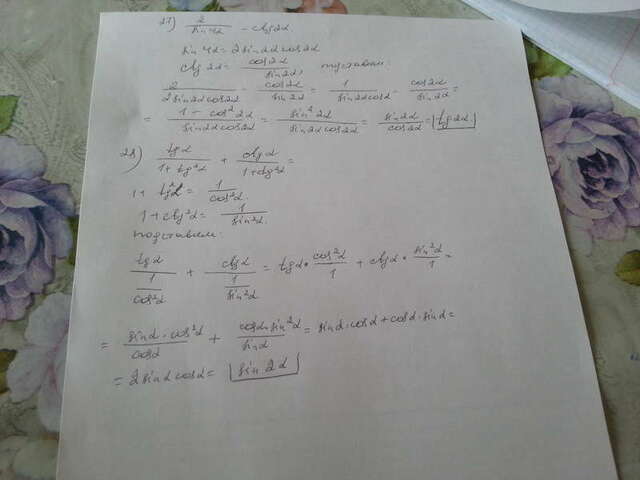 27) 2/sin4α - ctg2α.
sin4α = 2sin2αcos2α
ctg2α = cos2α/sin2α, подставим:
2/(2sin2αcos2α) - cos2α/sin2α = 1/(sin2αcos2α) - cos2α/sin2α =
= (1 - cos²2α)/(sin2αcos2α) = sin²2α/(sin2αcos2α) = sin2α/cos2α = tg2α.
28) tgα/(1 + tg²α) + ctgα/(1 + ctg²α) =
1 + tg²α = 1/cos²α
1 + ctg²α = 1/sin²α.
подставим:
tgα/(1/cos²α) + ctgα/(1/sin²α) = tgα · cos²α/1 + ctgα · sin²α/1 =
= sinα · cos²α/cosα + cosα · sin²α/sinα = sinα · cosα + cosα · sinα =
= 2sinα cosα = sin2α